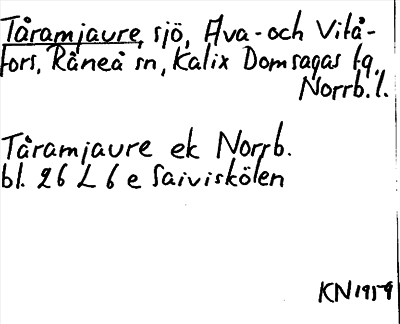 Tåramjaure, sjö, Alva- och Vitå-
fors, Råneå sn, Kalix Domsagas tg.
Norrb. l.
Tåramjaure ek Norrb.
bl. 26 L 6 e Saiviskölen
KN 1959